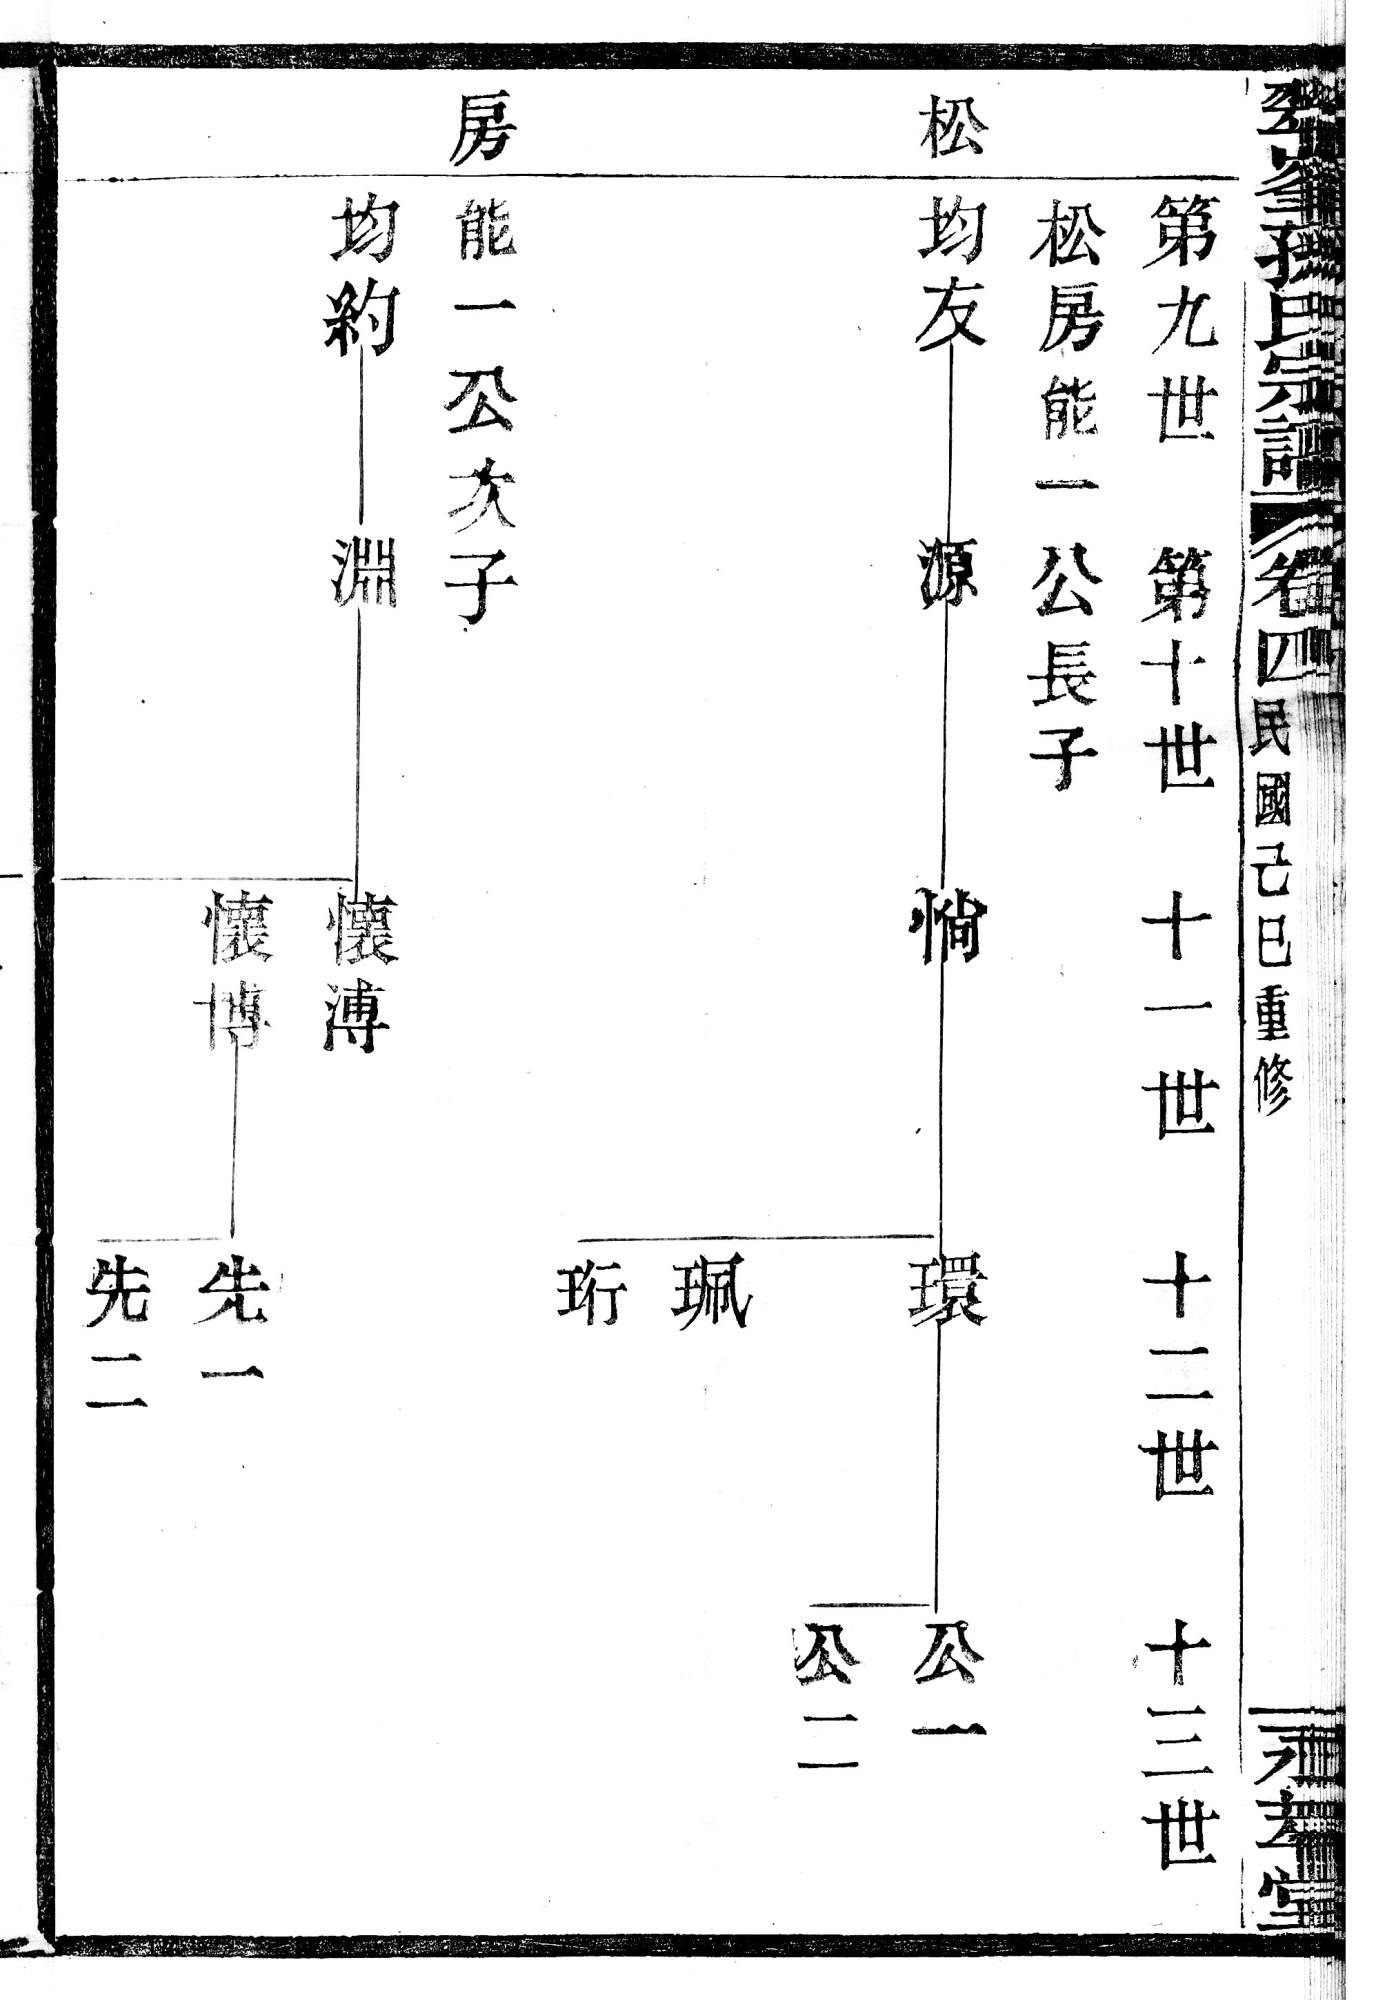 孫氏宗譜 卷四 民國己巳重修
松房
第九世 第十世 十一世 十二世 十三世
松房能一公長子
均友 源 惝 環 公一
公二
珮
珩
能一公次子
均約 淵 懷溥
懷博 先一
先二